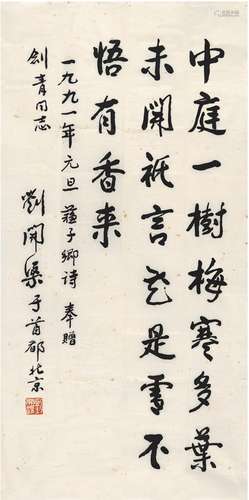 中庭一樹梅寒多葉
未開祇言花是雪不
悟有香来
一九九一年元旦蘇子卿詩 奉贈
劍青同志
劉開渠于首都北京